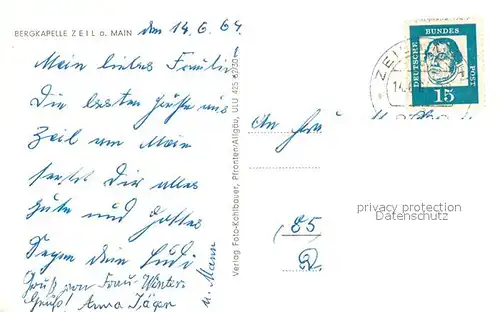 BERGKAPELLE ZEIL a. MAIN den 14.6.64
Mein liebes
Die besten Grüße aus
Zeil am Main
sendet Dir alles
Gute und Gottes
Segen dein
u. Mann
Gruß von Frau Winter
Gruß! Anna Jäger
Verlag Foto-Kohlbauer, Pfronten/Allgäu, ULU 425
An
(85
DEUTSCHE BUNDES POST
15
ZEIL
privacy protection
Datenschutz